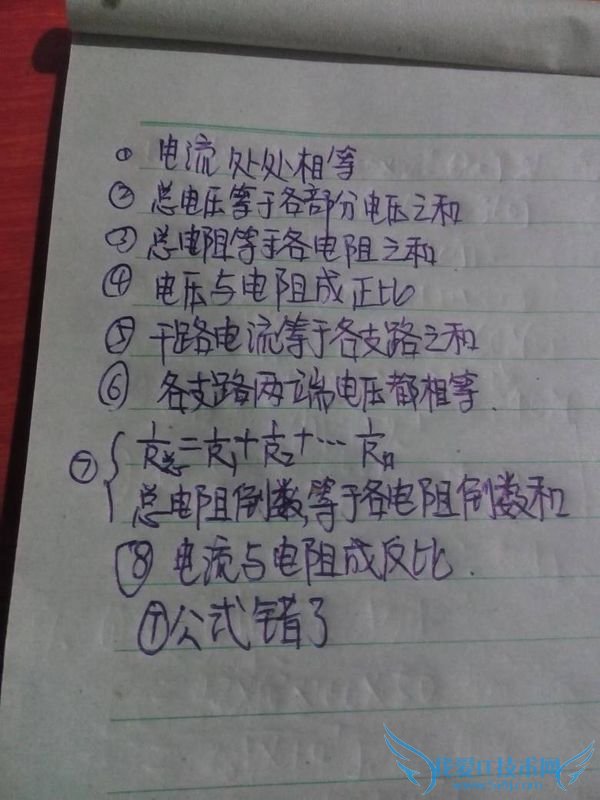 ① 电流处处相等
② 总电压等于各部分电压之和
③ 总电阻等于各电阻之和
④ 电压与电阻成正比
⑤ 干路电流等于各支路之和
⑥ 各支路两端电压都相等.
⑦ { 1/R总=1/R1+1/R2+… 1/Rn
总电阻倒数,等于各电阻倒数和
⑧ 电流与电阻成反比.
⑦公式错了
我爱IT技术网